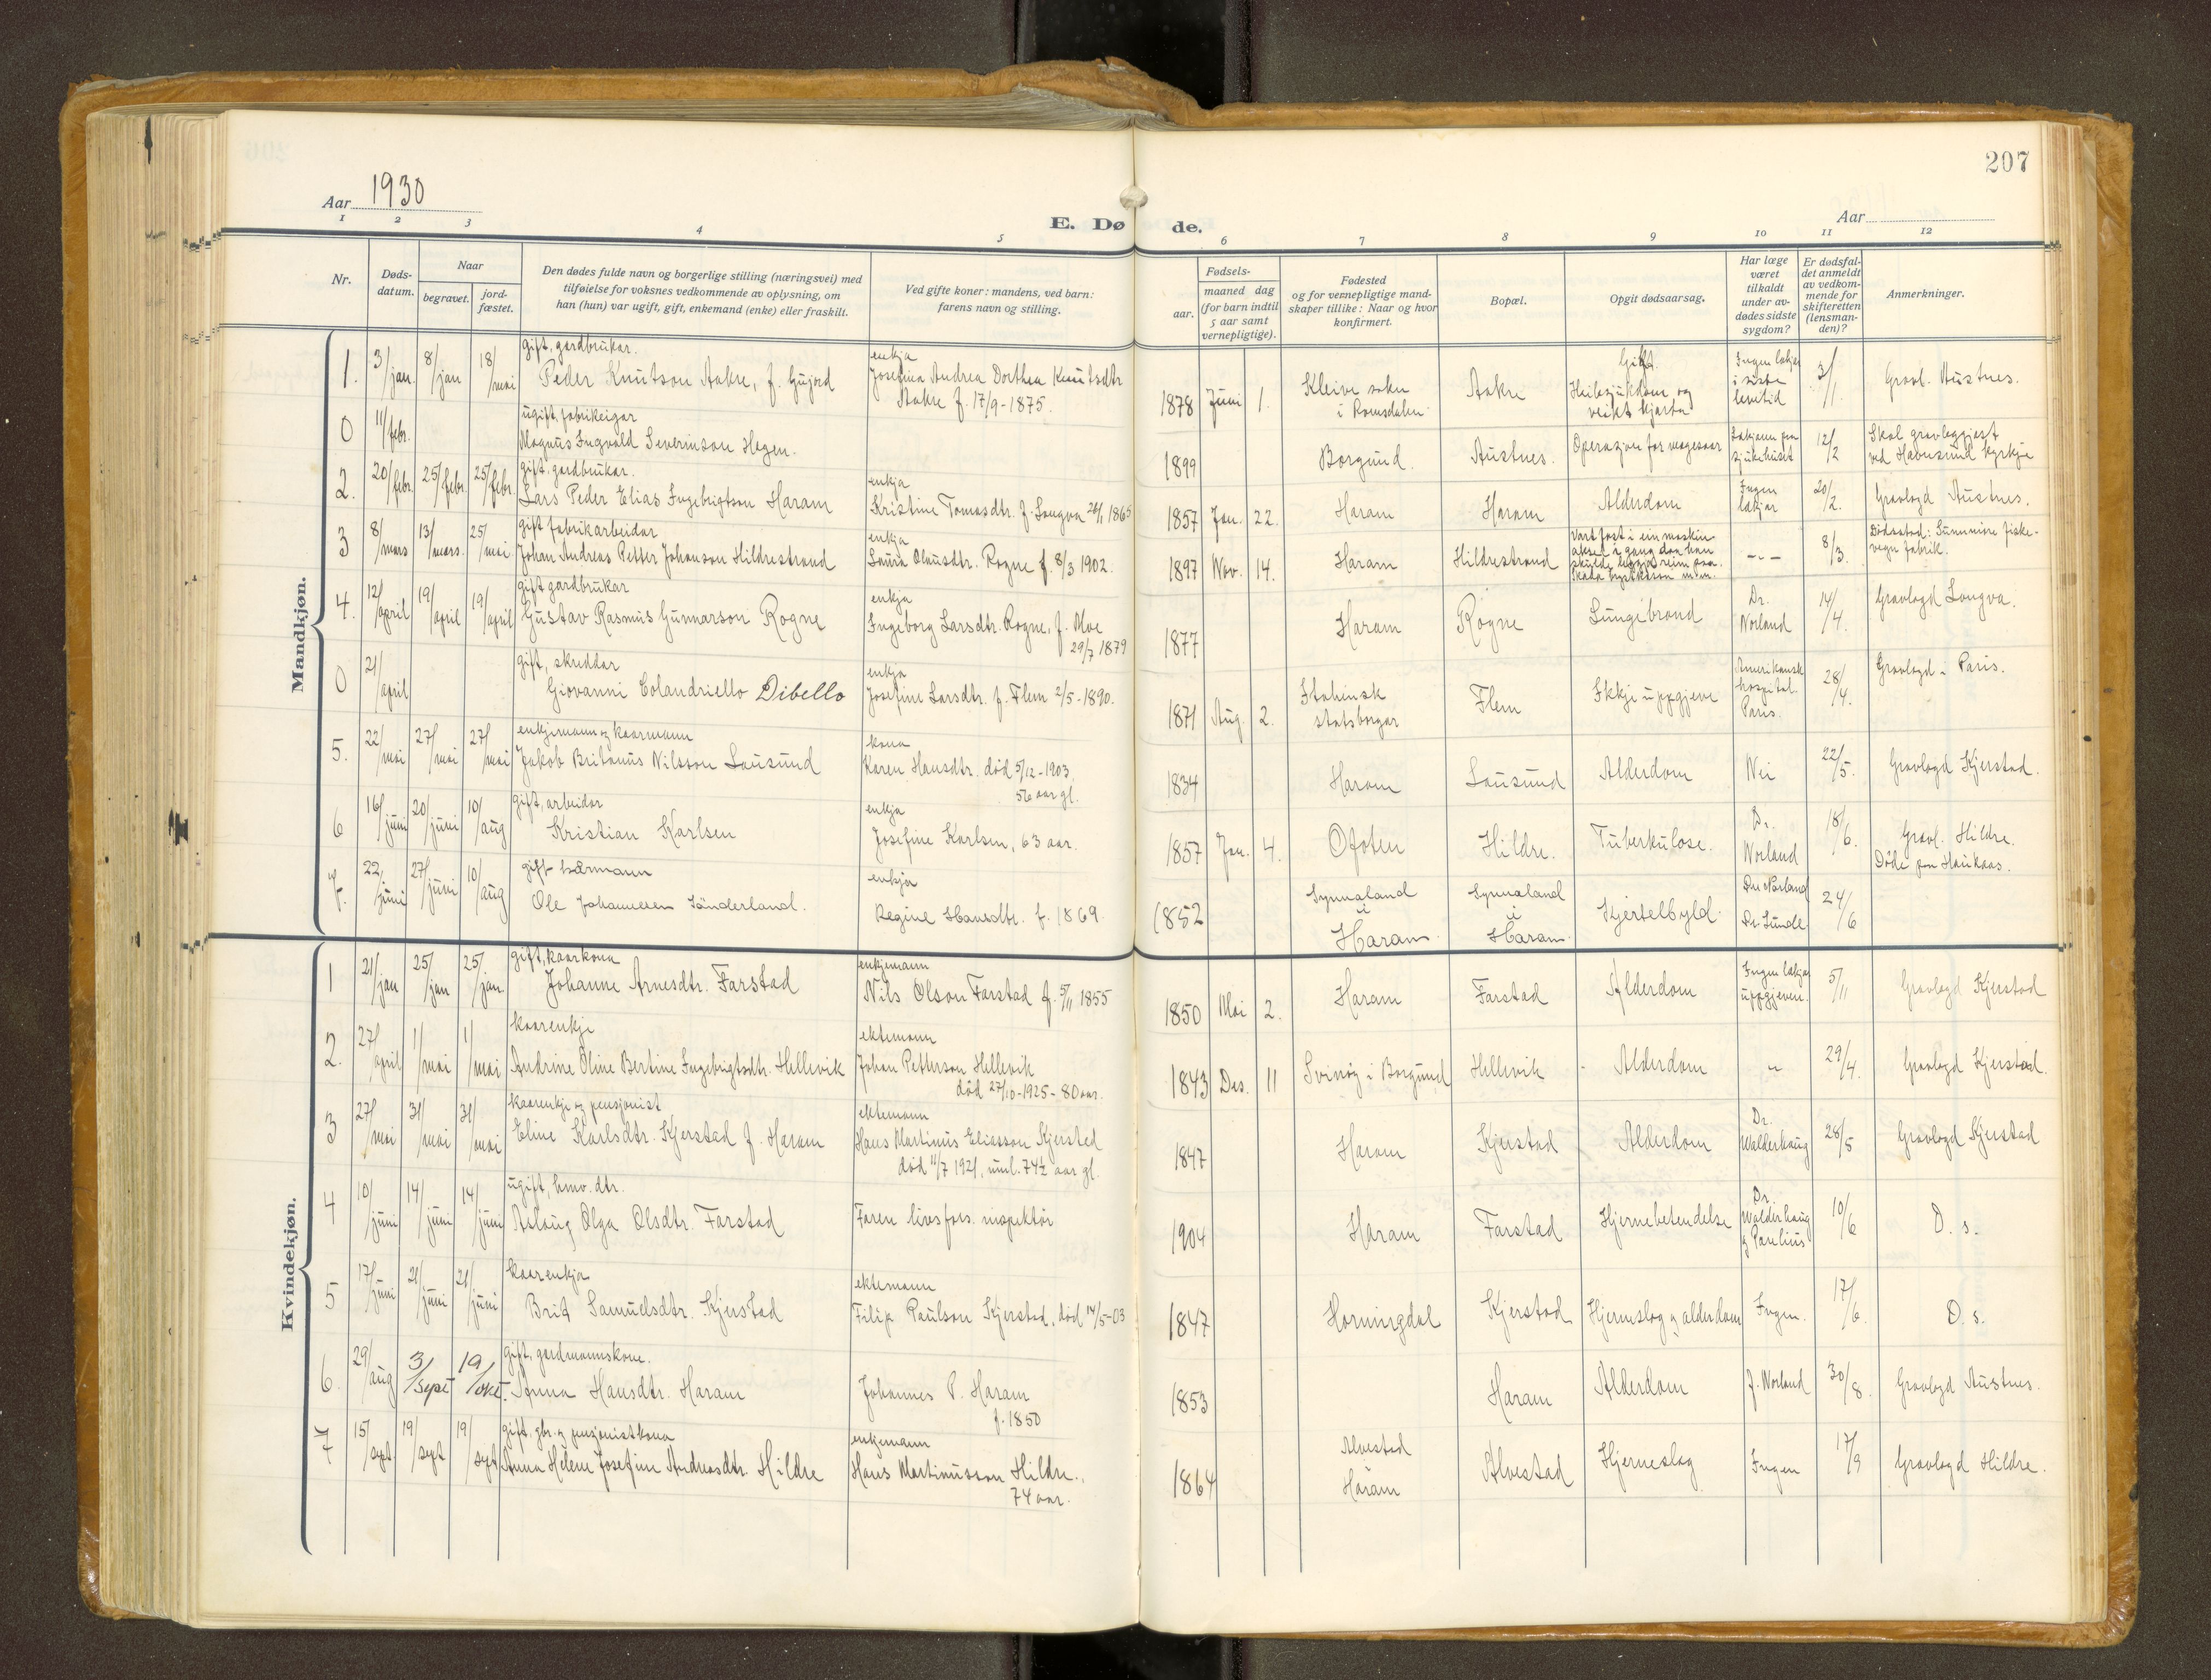 207
Aar 1930
Aar
E. Døde.
1 2 3 4 5 6 7 8 9 10 11 12
Nr.
Døds-datum.
Naar
begravet.
jord-fæstet.
Den dødes fulde navn og borgerlige stilling (næringsvei) med
tilføielse for voksnes vedkommende av oplysning, om
han (hun) var ugift, gift, enkemand (enke) eller fraskilt.
Ved gifte koner: mandens, ved barn:
farens navn og stilling.
Fødsels-
aar.
maaned dag
(for barn indtil
5 aar samt
vernepligtige).
Fødested
og for vernepligtige mand-
skaper tillike: Naar og hvor
konfirmert.
Bopæl.
Opgit dødsaarsag.
Har læge
været
tilkaldt
under av-
dødes sidste
sygdom?
Er dødsfal-
det anmeldt
av vedkom-
mende for
skifteretten
(lensman-
den)?
Anmerkninger.
Mandkjøn.
1. 3/jan. 8/jan 18/mai
gift, gardbrukar.
Peder Knutson Aakre, f. Gujord
enkja
Josefina Andrea Dorthea Knutsdtr
Aakre f. 17/9-1875.
1878 Juni 1.
Kleive sokn
i Romsdalen
Aakre
Gikt.
Heilesjukdom og
veikt hjarta
Ingen lækjar
i siste
levetid
3/1.
Gravl. Austnes.
0 11/febr.
ugift, fabrikeigar
Magnus Ingvald Severinson Hagen.
1899
Borgund.
Austnes.
Operasjon for magesaar
Lækjarn paa
sjukehuset
12/2
Skal gravleggjast
ved Hamnsund kyrkje
2. 20/febr. 25/febr. 25/febr.
gift, gardbrukar.
Lars Peder Elias Ingebrigtson Haram
enkja
Kristine Tomasdtr. f. Longva 26/1 1865
1857 Jan. 22.
Haram
Haram
Alderdom
Ingen
lækjar
20/2.
Gravlagd Austnes.
3 8/mars 13/mars. 25/mai
gift fabrikarbeidar
Johan Andreas Petter Johanson Hildrestrand
enkja
Laura Olausdtr. Rogne f. 8/3 1902.
1897 Nov. 14.
Haram
Hildrestrand
Vart fast i ein maskin-
aksel i gang daa han
skulde leggja reim paa.
Skada brystkassa m.m.
- " -
8/3.
Dødsstad: Sunnmøre fiske-
vegn fabrik.
4. 12/april 19/april 19/april
gift gardbrukar
Gustav Rasmus Gunnarson Rogne
enkja
Ingeborg Larsdtr. Rogne, f. Moe
29/7 1879
1877
Haram
Rogne
Lungebrand
Dr.
Norland
14/4.
Gravlagd Longva.
0 21/april
gift, skreddar
Giovanni Colandriello Dibello
enkja
Josefine Larsdtr. f. Flem 2/5-1890.
1871 Aug. 2.
Italiensk
statsborgar
Flem
Ikkje uppgjeve
Amerikansk
hospital.
Paris.
28/4.
Gravlagd i Paris.
5. 22/mai 27/mai 27/mai
enkjemann og kaarmann
Jakob Britanus Nilsson Lausund
kona
Karen Hansdtr. død 5/12-1903,
56 aar gl.
1834
Haram
Lausund
Alderdom
Nei
22/5.
Gravlagd Kjerstad.
6 16/juni 20/juni 10/aug
gift, arbeidar
Kristian Karlsen
enkja
Josefine Karlsen, 63 aar.
1857 Jan. 4.
Ofoten
Hildre.
Tuberkulose.
Dr.
Norland
18/6.
Gravl. Hildre.
Døde paa Haukaas.
7. 22/juni 27/juni 10/aug
gift kårmann
Ole Johannesen Sønderland.
enkja
Regine Hansdtr. f. 1869.
1852
Synnaland
i
Haram
Synnaland
i
Haram
Kjertelbyld.
Dr Norland
Dr. Sunde
24/6
Kvindekjøn.
1 21/jan 25/jan 25/jan.
gift, kaarkona
Johanne Arnesdtr. Farstad
enkjemann
Nils Olson Farstad f. 5/11 1855
1850 Mai 2.
Haram
Farstad
Alderdom
Ingen lækjar
uppgjeven.
5/11
Gravlagd Kjerstad
2. 27/april 1/mai 1/mai
kaarenkje
Andrine Oline Bertine Ingebrigtsdtr. Hellevik
ektemann
Johan Petterson Hellevik
død 27/10-1925 - 80 aar.
1843 Des. 11
Svinøy i Borgund
Hellevik
Alderdom
"
29/4.
Gravlagd Kjerstad.
3 27/mai 31/mai 31/mai
kaarenkje og pensjonist
Eline Karlsdtr. Kjerstad f. Haram
ektemann
Hans Martinus Eliasson Kjerstad
død 11/7 1921, uml. 74½ aar gl.
1847
Haram
Kjerstad
Alderdom
Dr.
Walderhaug
28/5
Gravlagd Kjerstad
4 10/juni 14/juni 14/juni
ugift, hmv. dtr.
Aslaug Olga Olsdtr. Farstad
Faren livsfors. inspektør
1904
Haram
Farstad
Hjernebetendelse
Dr.
Walderhaug
og Paulius
10/6
D. s.
5 17/juni 21/juni 21/juni
kaarenkja
Brit Samuelsdtr. Kjerstad
ektemann
Filip Paulson Kjerstad, død 14/5-03
1847
Horningdal
Kjerstad
Hjerneslag og alderdom
Ingen.
17/6.
D. s.
6. 29/aug 3/sept 19/okt.
gift, gardmannskone.
Anna Hansdtr. Haram
Johannes P. Haram
f. 1850
1853
Haram
Alderdom
J. Norland
30/8.
Gravlagd Austnes.
7 15/sept. 19/sept 19/sept
gift, gbr. og pensjonistkona
Anna Helene Josefine Andreasdtr. Hildre
enkjemann
Hans Martinusson Hildre.,
74 aar.
1864
Alvestad
Haram
Alvestad
Hjerneslag
Ingen
17/9
Gravlagd Hildre.